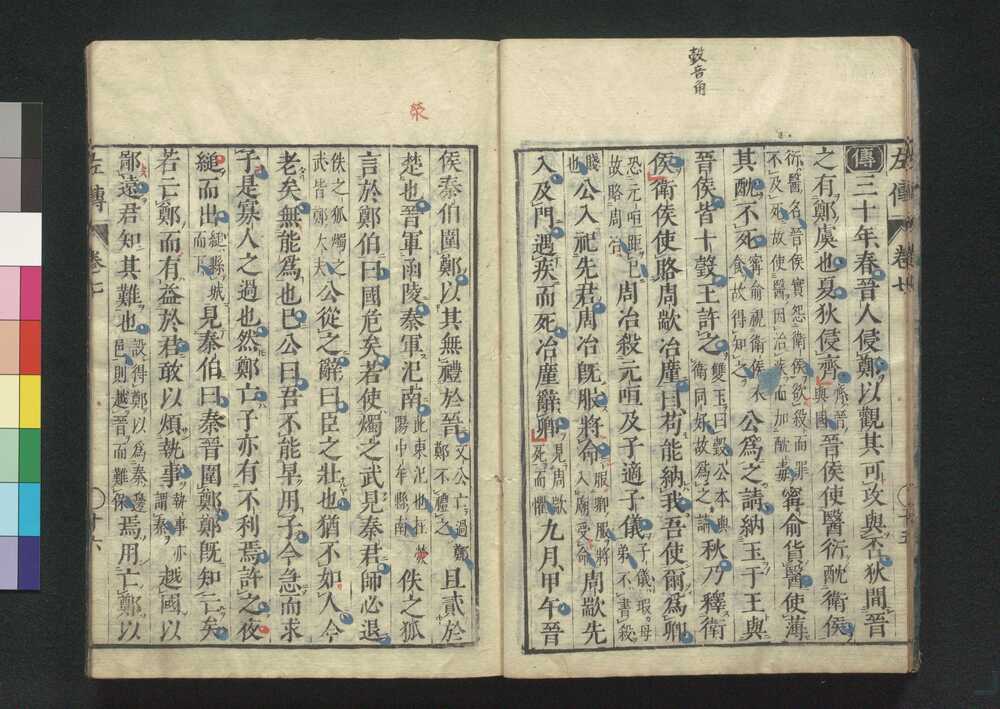 轂音角
左傳 卷七 十五
傳三十年春晉人侵鄭以觀其可攻與否狄間晉
之有鄭虞也夏狄侵齊齊晉與國晉侯使醫衍酖衛侯
衍醫名晉侯實怨衛侯欲殺而罪不及死故使醫因治疾而加酖毒甯俞貨醫使薄
其酖不死甯俞視衛侯衣食故得知之公爲之請納玉于王與
晉侯皆十瑴王許之雙玉曰瑴公本與衛同好故爲之請秋乃釋衛
侯衛侯使賂周歂冶廑曰苟能納我吾使爾爲卿
恐元咺距已故賂周冶周冶殺元咺及子適子儀子儀瑕母弟不書殺
賤也公入祀先君周冶既服將命服卿服將入廟受命周歂先
入及門遇疾而死冶廑辭卿見周歂死而懼九月甲午晉
滎
侯秦伯圍鄭以其無禮於晉文公亡過鄭鄭不禮之且貳於
楚也晉軍函陵秦軍氾南此東氾也在滎陽中牟縣南佚之狐
言於鄭伯曰國危矣若使燭之武見秦君師必退
佚之狐燭之武皆鄭大夫公從之辭曰臣之壯也猶不如人今
老矣無能爲也巳公曰吾不能早用子今急而求
子是寡人之過也然鄭亡子亦有不利焉許之夜
縋而出縋縣城而下見秦伯曰秦晉圍鄭鄭既知亡矣
若亡鄭而有益於君敢以煩執事執事亦謂秦越國以
鄙遠君知其難也設得鄭以爲秦邊邑則越晉而難保焉用亡鄭以
左傳 卷七 十六